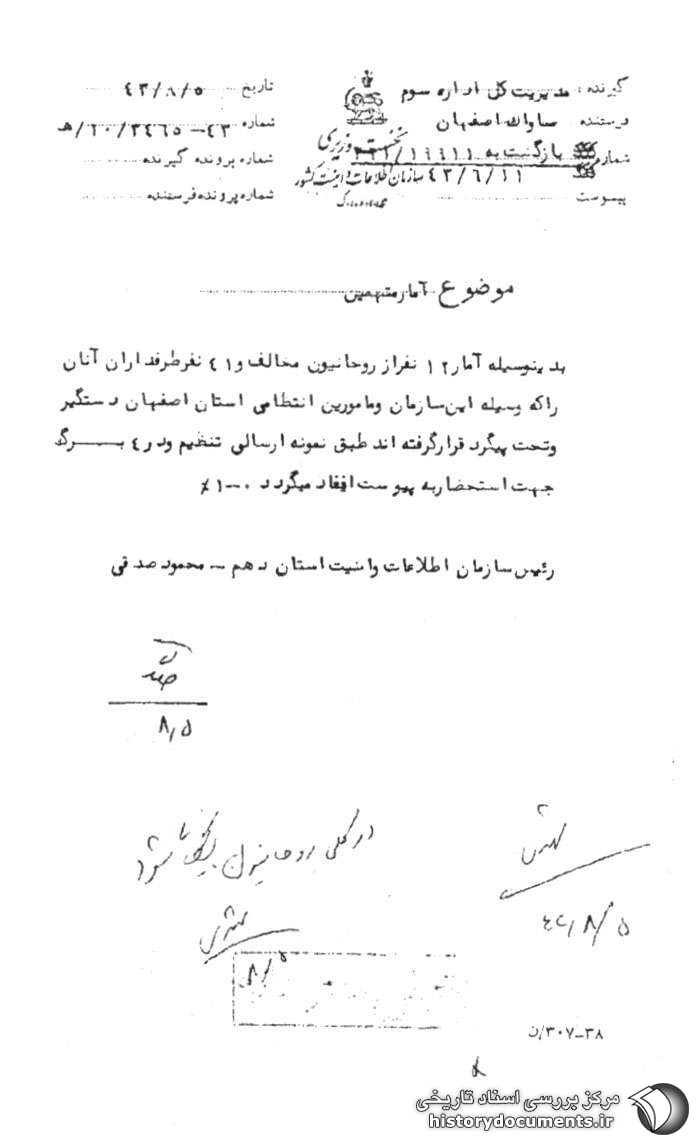 گیرنده : مدیریت کل اداره سوم
فرستنده ساواک اصفهان
شماره بازگشت به ۳۲۱/۱۹۹۱۱
۴۳/۶/۱۱
پیوست
نخست وزیری
سازمان اطلاعات و امنیت کشور
تاریخ ۴۳/۸/۵
شماره ۴۳-۱۰/۳۴۶۵/ه
شماره پرونده گیرنده
شماره پرونده فرستنده
موضوع آمار متهمین
بدینوسیله آمار ۱۲ نفر از روحانیون مخالف و ۴۱ نفر طرفداران آنان
را که وسیله این سازمان و مامورین انتظامی استان اصفهان دستگیر
و تحت پیگرد قرار گرفته اند طبق نمونه ارسالی تنظیم و در ۴ بــرگ
جهت استحضار به پیوست ایفاد میگردد ۰-۱٪
رئیس سازمان اطلاعات و امنیت استان دهم - محمود صدقی
۸/۵
در کلی روحانیون شود
۴۳/۸/۵
۳۰۷-۳۸/ن
مرکز بررسی اسناد تاریخی
historydocuments.ir